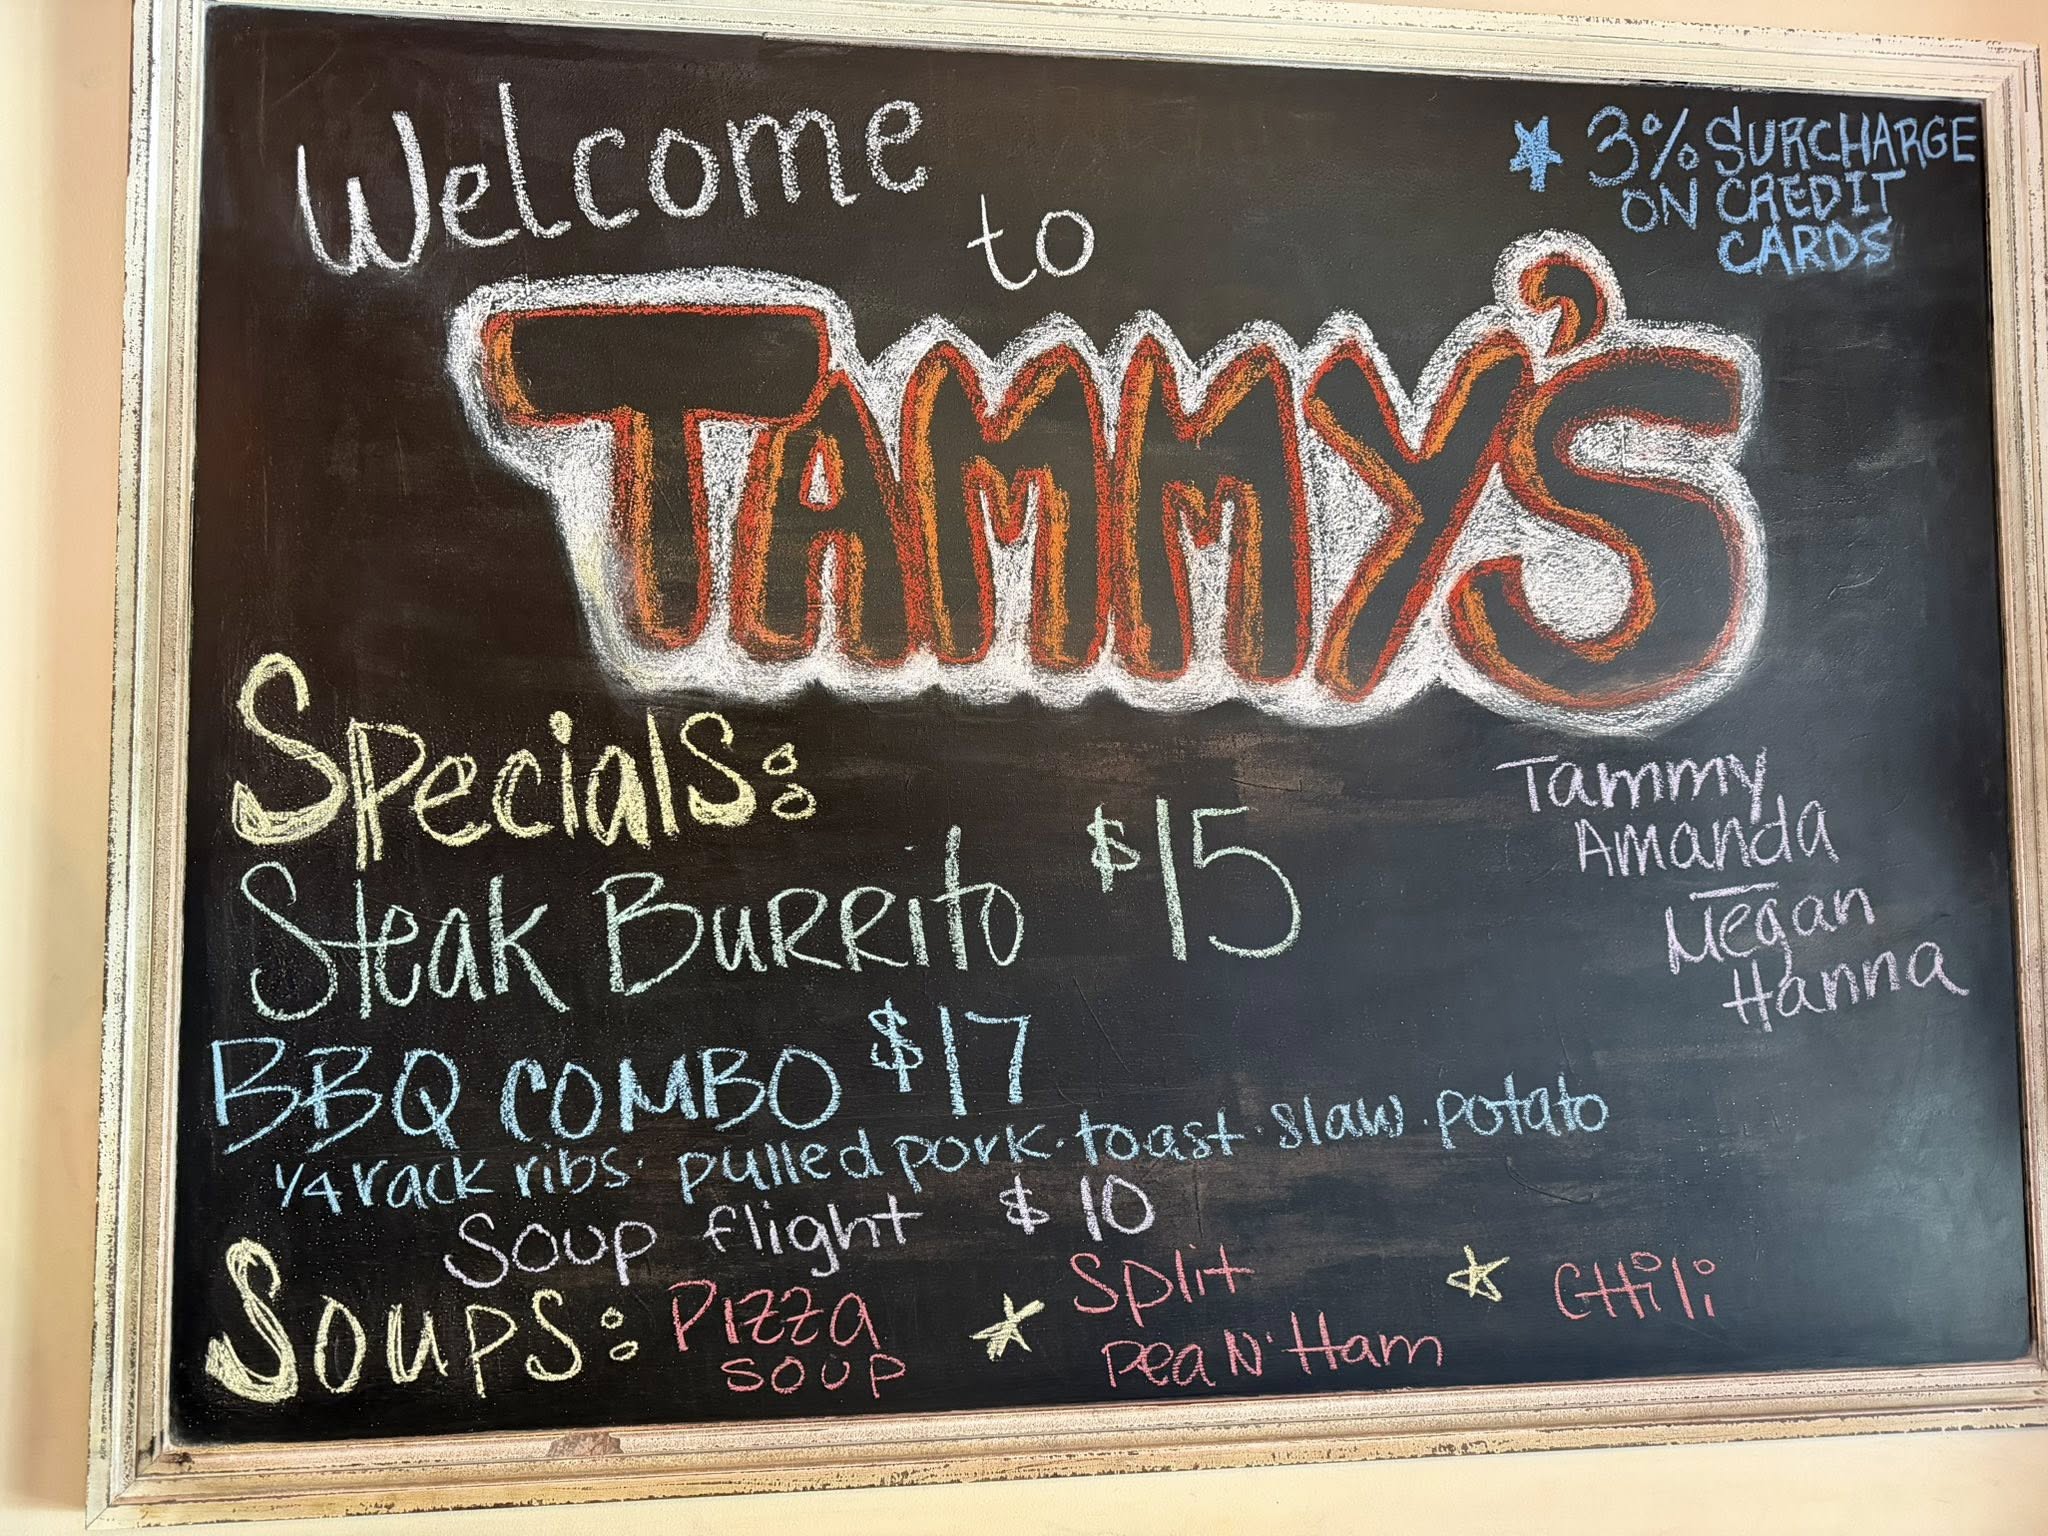 Welcome
to
TAMMY'S
★ 3% SURCHARGE
ON CREDIT
CARDS
Specials:
Steak Burrito $15
BBQ COMBO $17
1/4 rack ribs · pulled pork · toast · slaw · potato
Soup flight $10
Soups: Pizza soup ★ Split pea N' Ham ★ CHili
Tammy
Amanda
Megan
Hanna